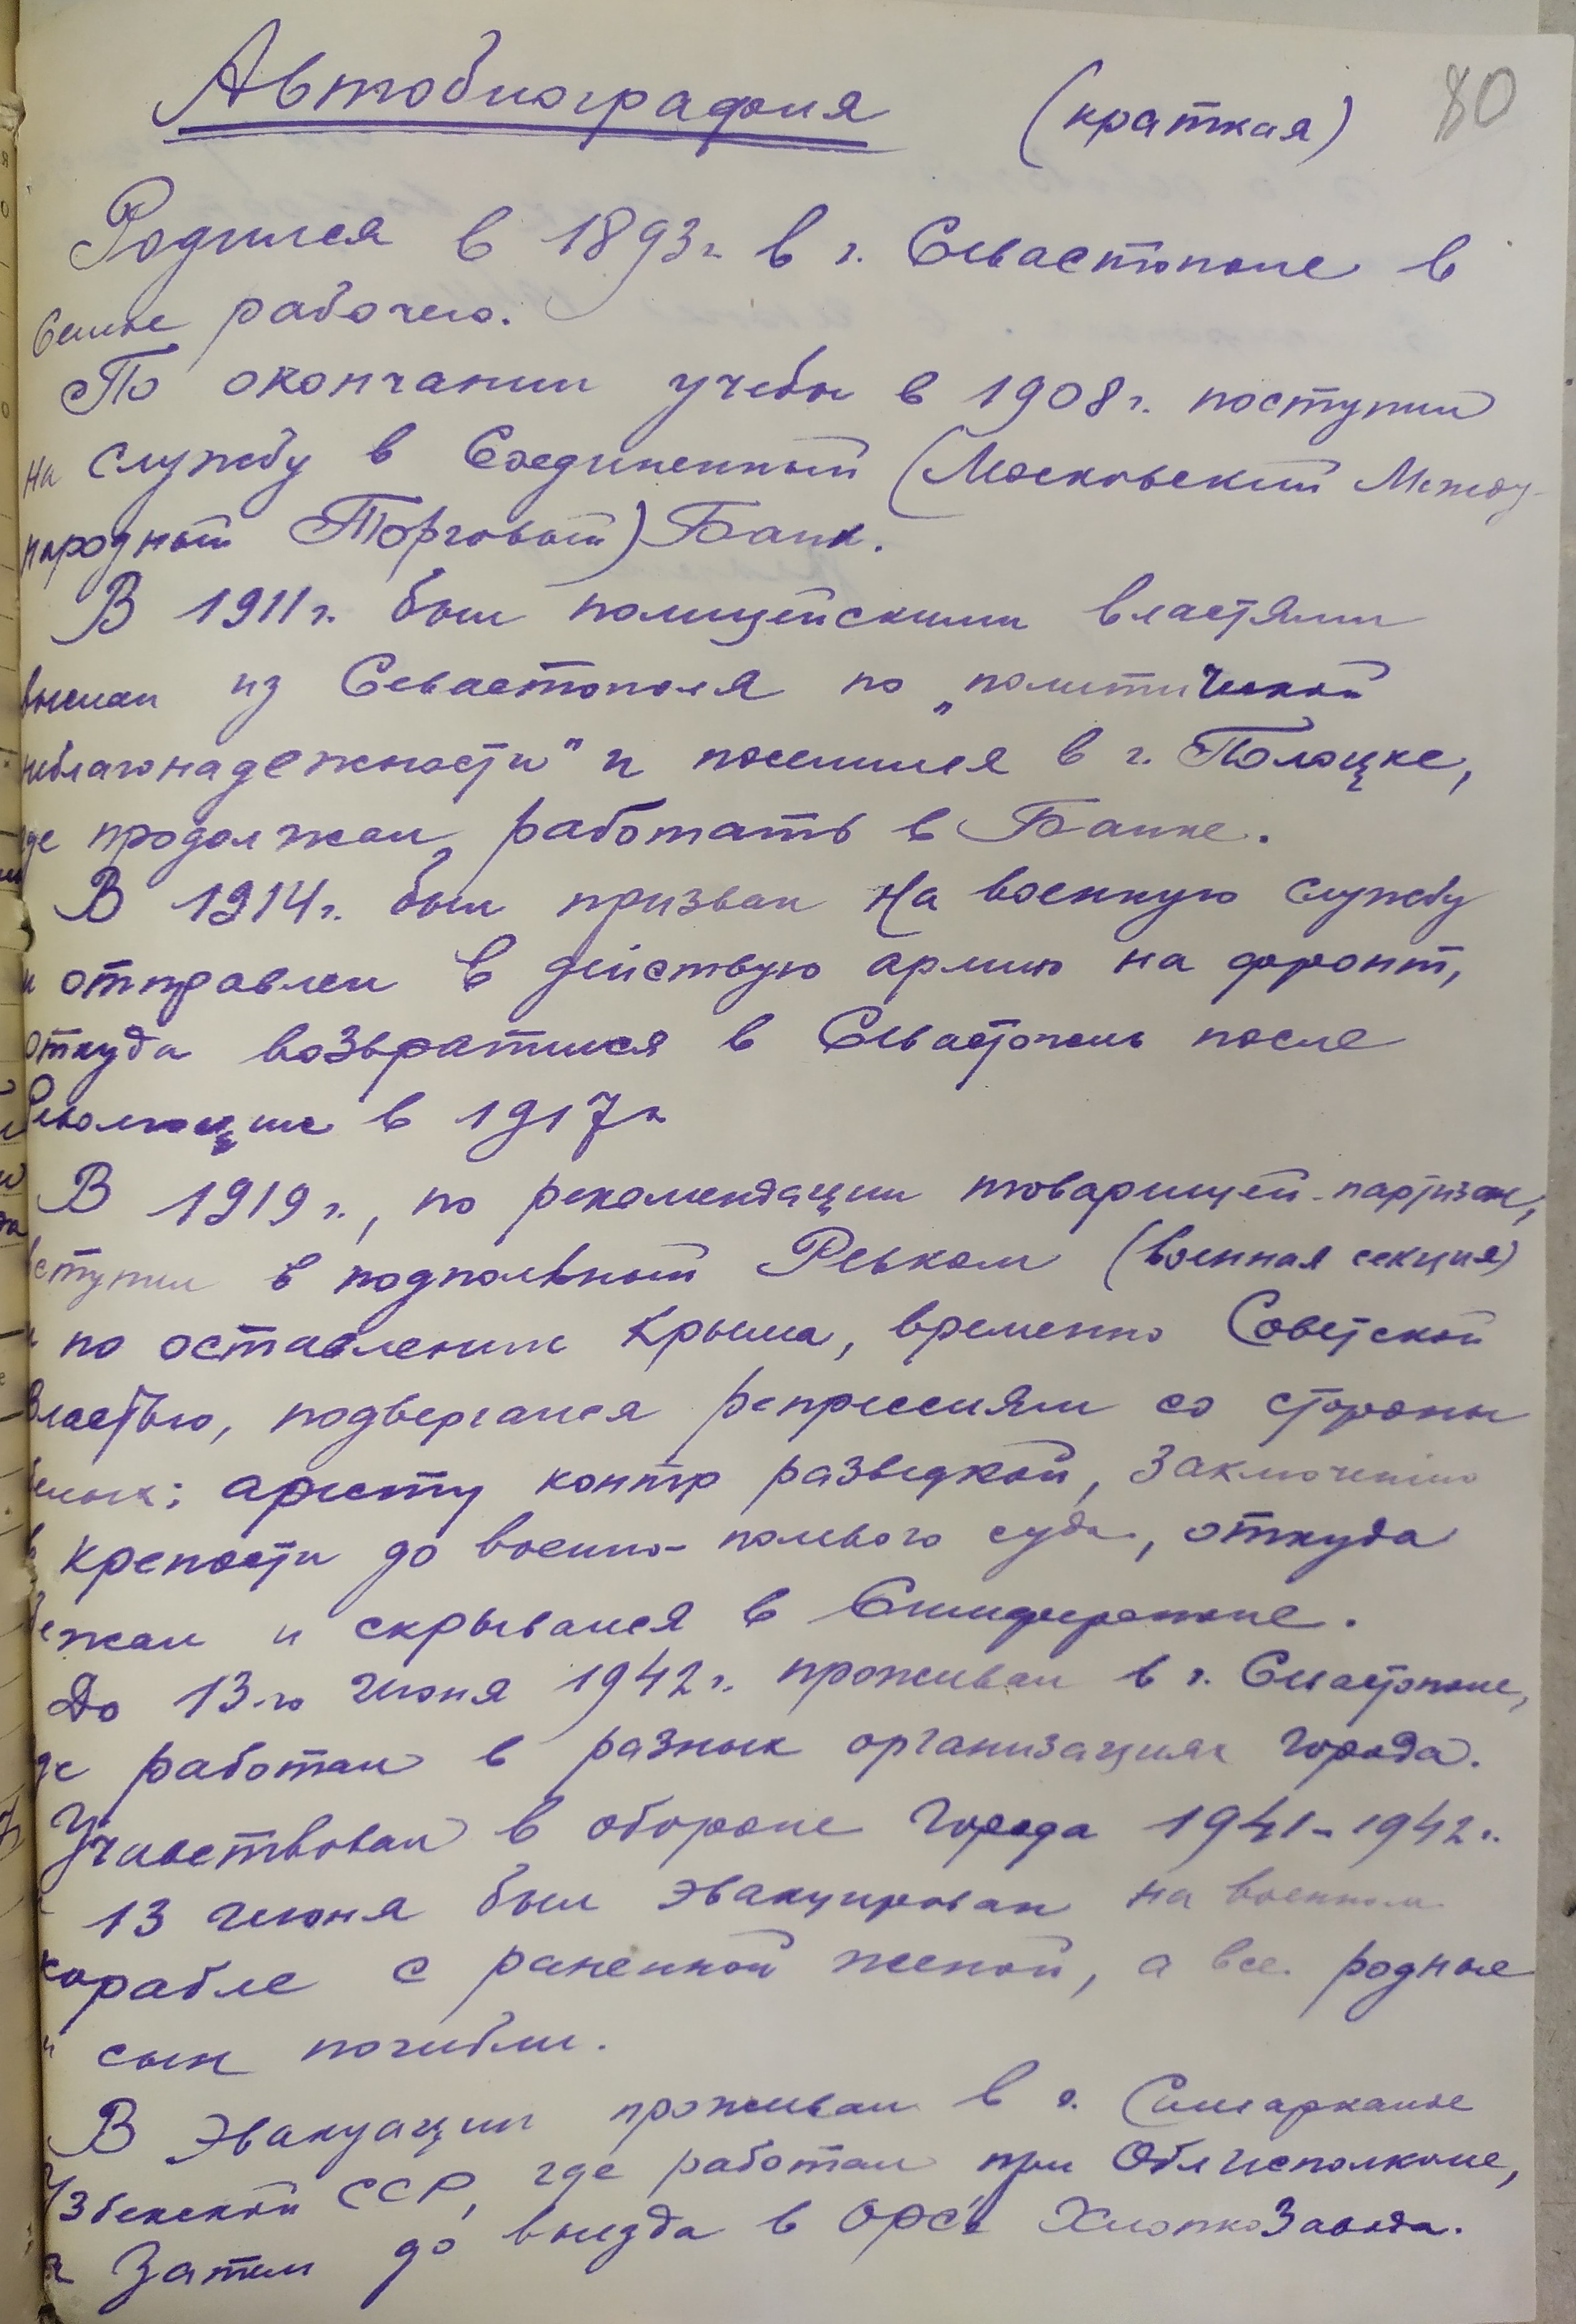 80
Автобиография (краткая)
Родился в 1893 г. в г. Севастополе в
семье рабочего.
По окончании учебы в 1908 г. поступил
на службу в Соединенный (Московский Между-
народный Торговый) Банк.
В 1911 г. был полицейскими властями
выслан из Севастополя по „политической
неблагонадежности" и поселился в г. Полоцке,
где продолжал работать в Банке.
В 1914 г. был призван на военную службу
и отправлен в действую армию на фронт,
откуда возвратился в Севастополь после
Революции в 1917 г.
В 1919 г., по рекомендации товарищей-партизан,
вступил в подпольный Ревком (военная секция)
и по оставлении Крыма, временно Советской
Властью, подвергался репрессиям со стороны
белых: аресту контр разведкой, заключению
в крепости до военно-полевого суда, откуда
бежал и скрывался в Симферополе.
До 13-го Июня 1942 г. проживал в г. Севастополе,
где работал в разных организациях города.
Участвовал в обороне Города 1941-1942 г.
13 Июня был эвакуирован на военном
корабле с раненной женой, а все родные
и сын погибли.
В Эвакуации проживал в г. Самарканде
Узбекской ССР, где работал при Облисполкоме,
а Затем до выезда в ОРС'е ХлопкоЗавода.